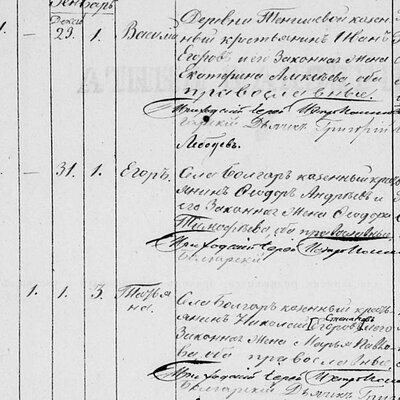 Генварь
Декаб
1. — 29. 1. Василій
Деревни Тенишевой казен-
ный крестьянинъ Иванъ
Егоровъ и его Законная Жена
Екатерина Алексѣева, оба
православные.
Приходскій Іерей Петръ
Дьячекъ Григорій
Лебедевъ.
— 31. 1. Егоръ,
Села Болгаръ казенный кресть-
янинъ Ѳеодоръ Андреевъ и
его Законная Жена Ѳеодора
Тимофѣева, оба православные,
Приходскій Іерей Петръ
1. 1. 3. Татья-
на.
Села Болгаръ казенный кресть-
янинъ Николай [Егоровъ] Степановъ и его
Законная Жена Марья Павло-
ва оба православные,
Приходскій Іерей Петръ
Дьячекъ Гри